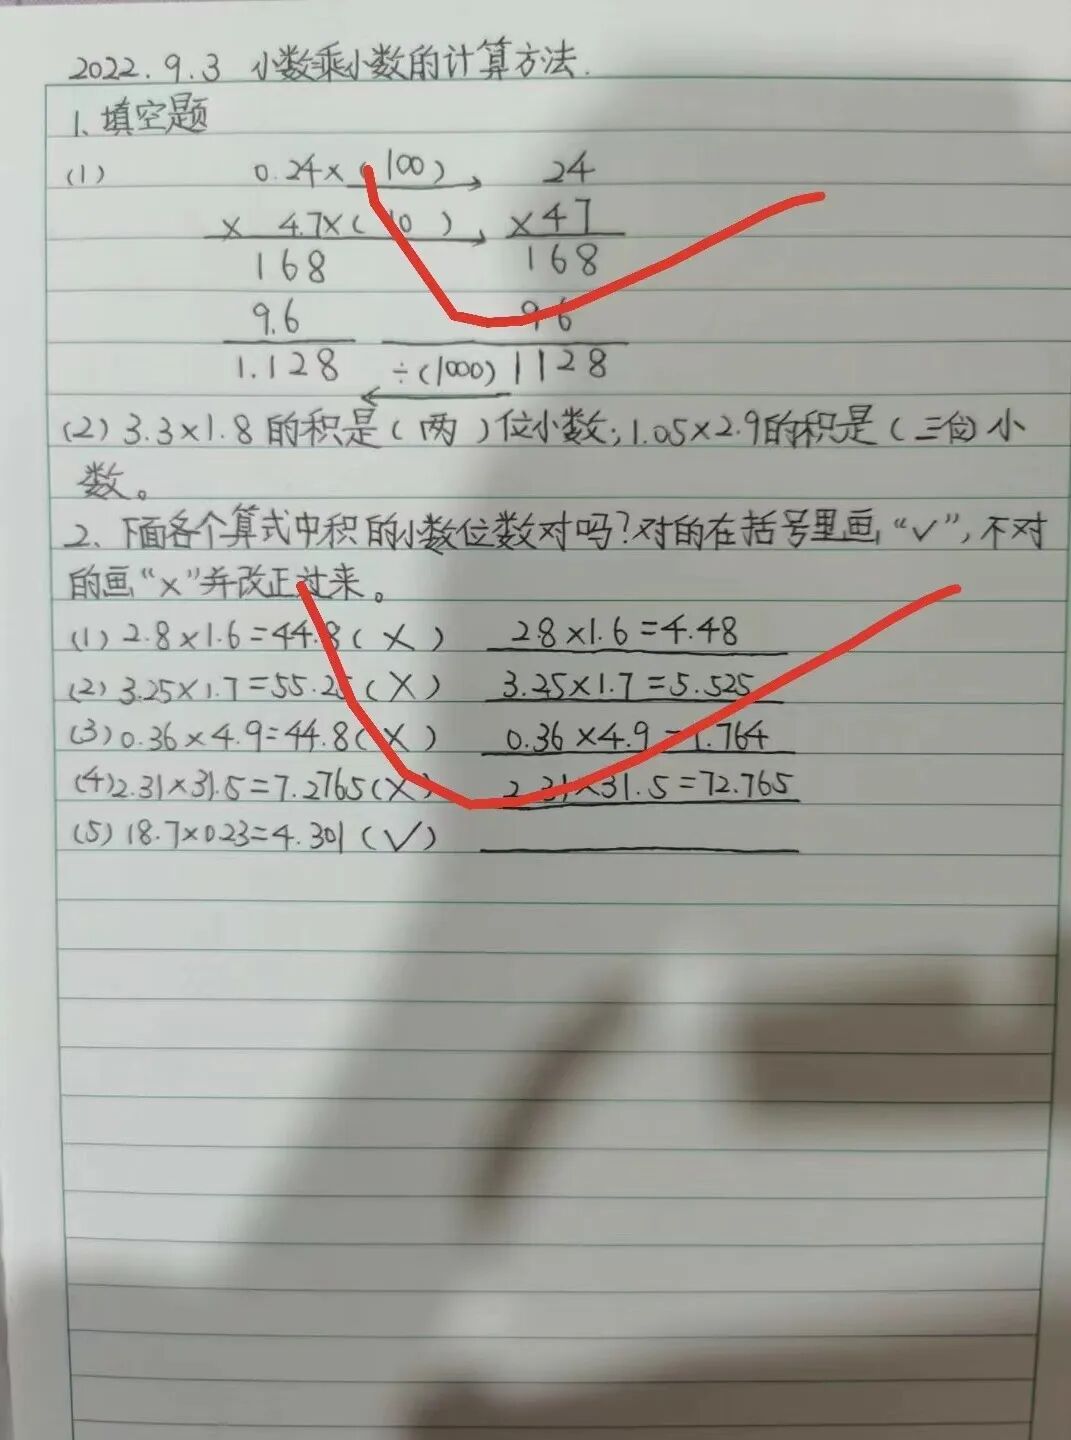 2022.9.3 小数乘小数的计算方法.
1、填空题
(1) 0.24×(100) → 24
× 4.7×(10) → ×47
168 168
9.6 96
1.128 ÷(1000) 1128
←
(2) 3.3×1.8的积是(两)位小数;1.05×2.9的积是(三位)小
数。
2、下面各个算式中积的小数位数对吗?对的在括号里画“✓”,不对
的画“×”并改正过来。
(1) 2.8×1.6=44.8(×) 2.8×1.6=4.48
(2) 3.25×1.7=55.25(×) 3.25×1.7=5.525
(3) 0.36×4.9=44.8(×) 0.36×4.9=1.764
(4) 2.31×31.5=7.2765(×) 2.31×31.5=72.765
(5) 18.7×0.23=4.301(✓)